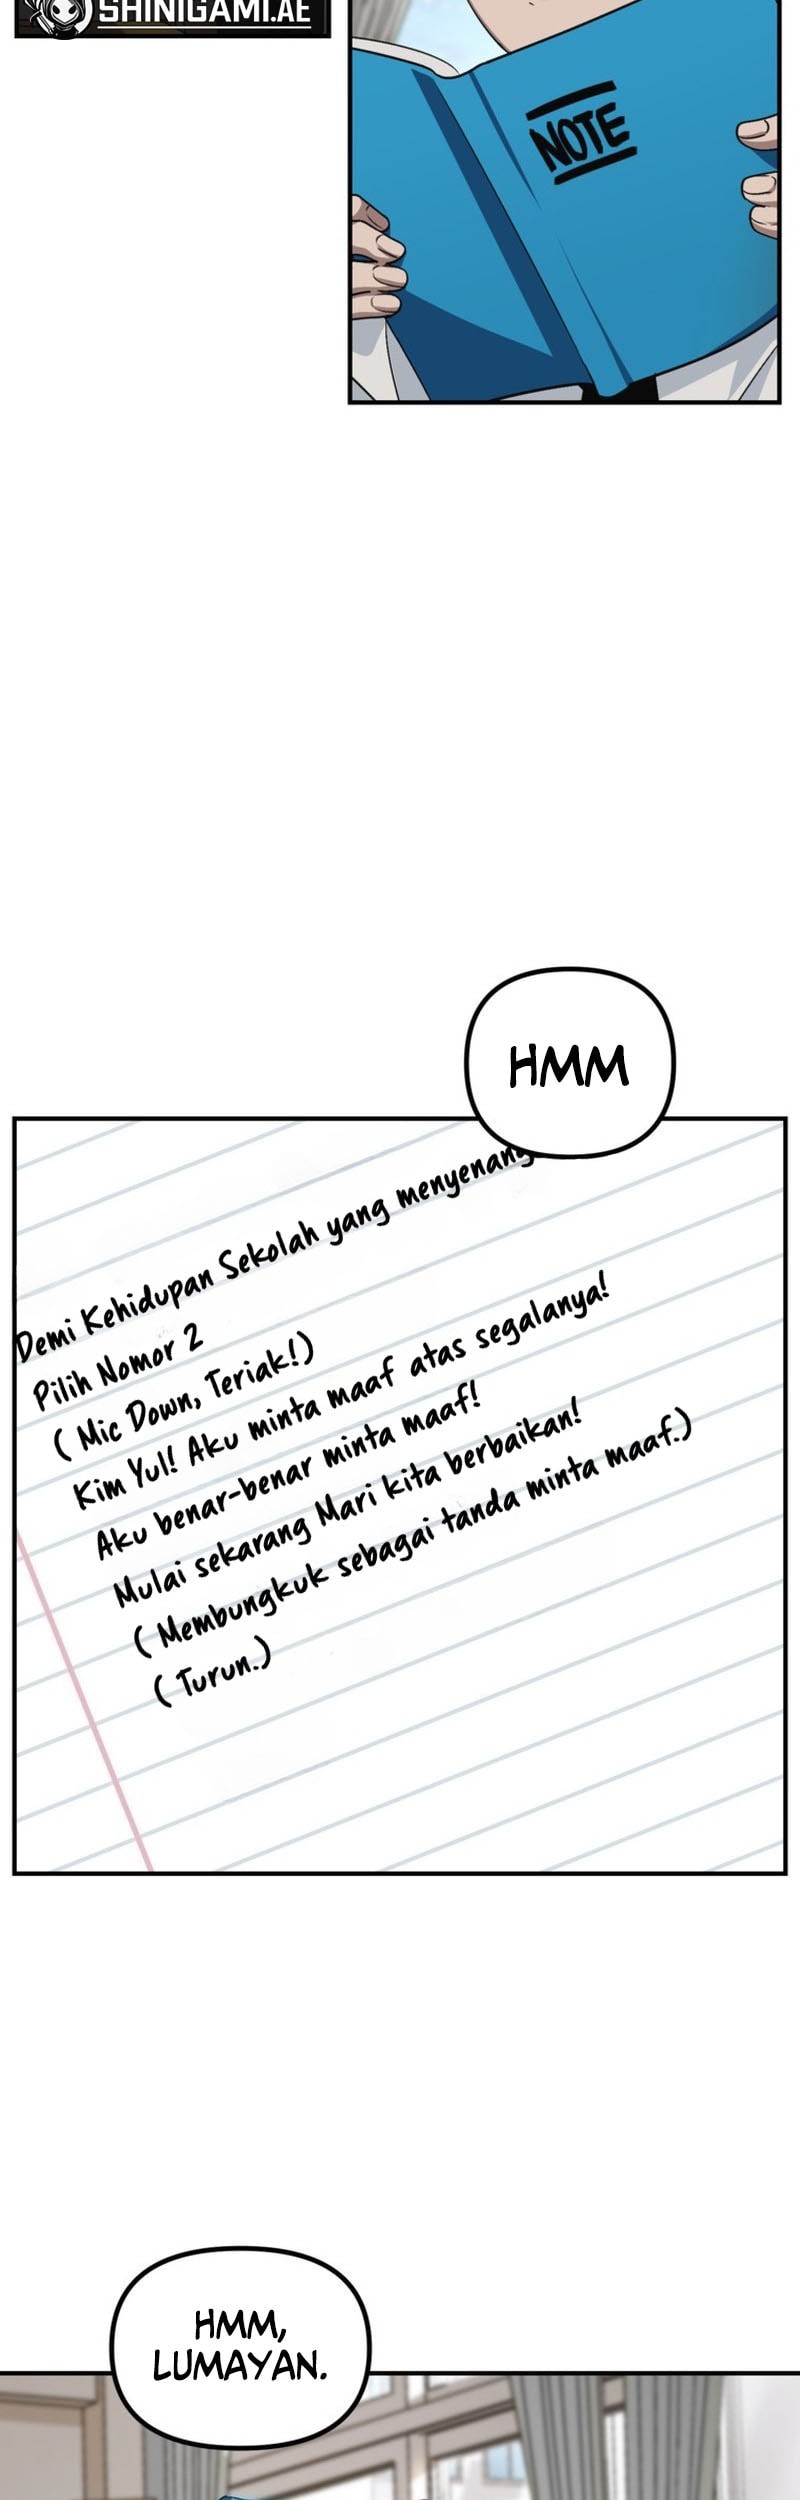 SHINIGAMI.AE
NOTE
HMM
Demi Kehidupan Sekolah yang menyenang
Pilih Nomor 2
( Mic Down, Teriak!)
Kim Yul! Aku minta maaf atas segalanya!
Aku benar-benar minta maaf!
Mulai sekarang Mari kita berbaikan!
( Membungkuk sebagai tanda minta maaf.)
( Turun.)
HMM,
LUMAYAN.